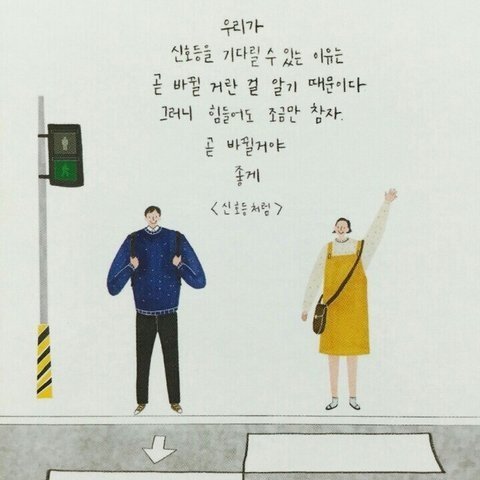 우리가
신호등을 기다릴 수 있는 이유는
곧 바뀔 거란 걸 알기 때문이다
그러니 힘들어도 조금만 참자.
곧 바뀔거야
좋게
<신호등처럼>